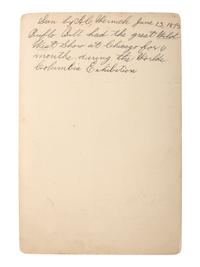 by
June 13, 189
Buffalo Bill had the great Wild
West Show at Chicago for 6
months during the Worlds
Columbia Exhibition